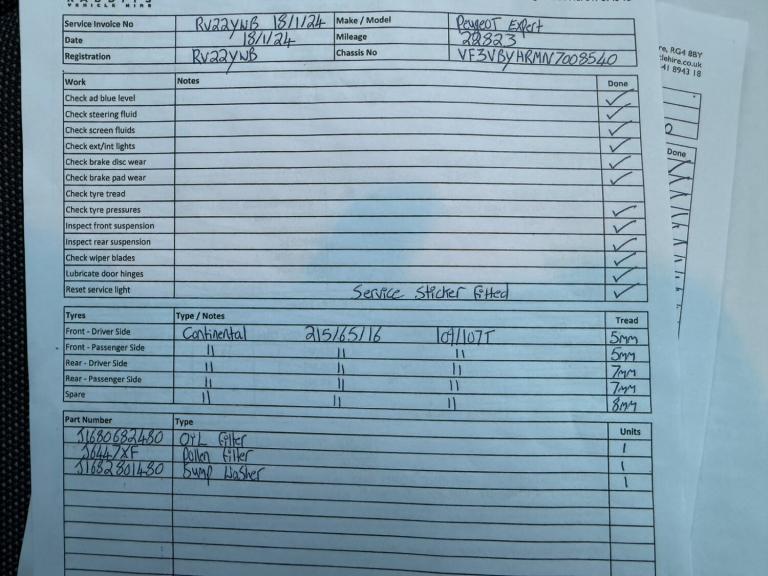 VEHICLE HIRE
Service Invoice No RV22YNB 18/1/24 Make / Model Peugeot Expert
Date 18/1/24 Mileage 22823
Registration RV22YNB Chassis No VF3VBYHRMN7008540
re, RG4 8BY
lehire.co.uk
41 8943 18
Work Notes Done
Check ad blue level ✓
Check steering fluid ✓
Check screen fluids ✓
Check ext/int lights ✓
Check brake disc wear ✓
Check brake pad wear ✓
Check tyre tread
Check tyre pressures ✓
Inspect front suspension ✓
Inspect rear suspension ✓
Check wiper blades ✓
Lubricate door hinges ✓
Reset service light Service Sticker fitted ✓
Done
Tyres Type / Notes Tread
Front - Driver Side Continental 215/65/16 109/107T 5mm
Front - Passenger Side " " " 5mm
Rear - Driver Side " " " 7mm
Rear - Passenger Side " " " 7mm
Spare " " " 8mm
Part Number Type Units
J1680682480 OIL filter 1
J6447XF Pollen filter 1
J1682801480 Sump Washer 1